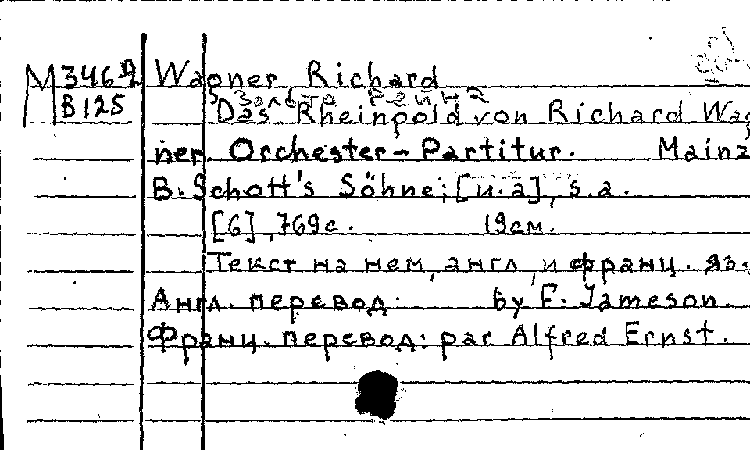 М346Д Wagner Richard
В125 Золото Рейна
Das Rheingold von Richard Wag
ner. Orchester-Partitur. Mainz
B. Schott's Söhne; [u.a], s.a.
[6], 769с. 19см.
Текст на нем, англ, и франц. яз.
Англ. перевод: by F. Jameson.
Франц. перевод: par Alfred Ernst.